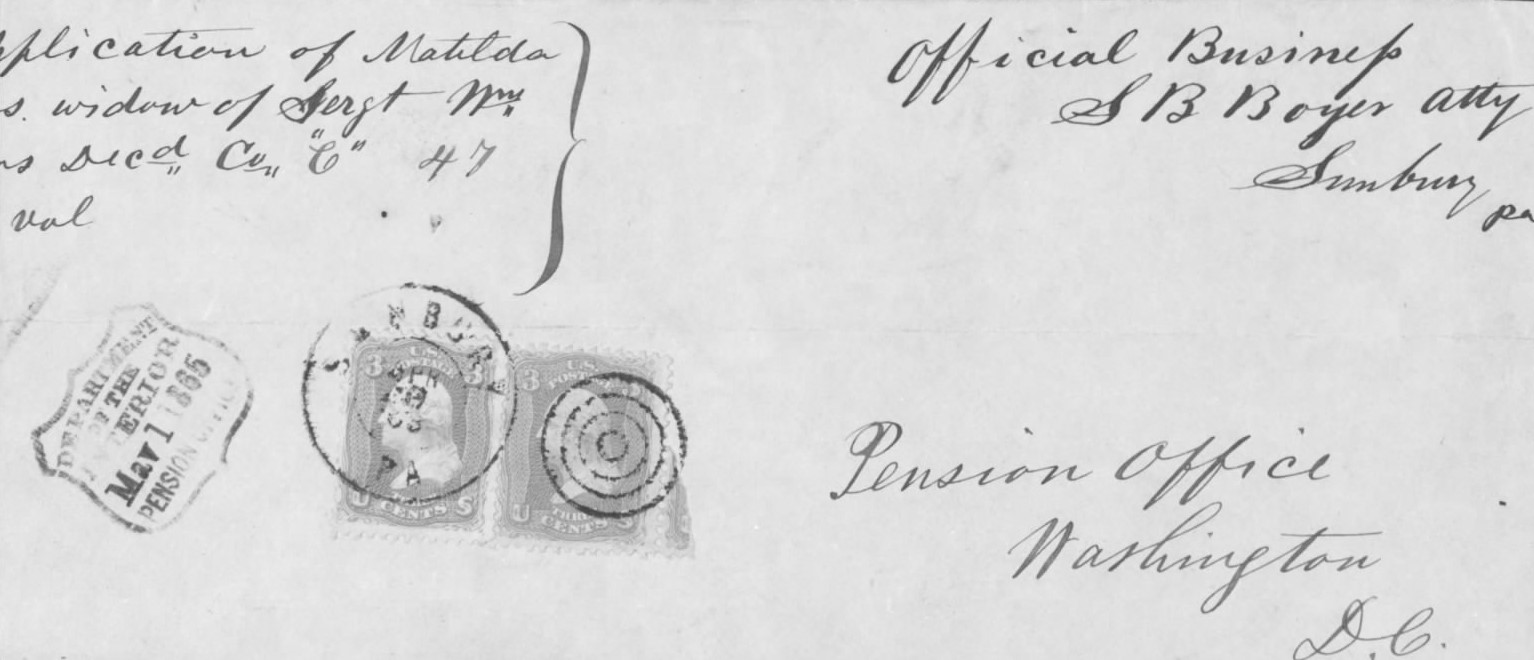 pplication of Matilda
s. widow of Sergt Wm
ns Decd Co "C" 47
vol
Official Business
S B Boyer Atty
Sunbury
Pa
DEPARTMENT
OF THE
INTERIOR
May 1 1865
PENSION OFFICE
SUNBURY
APR
PA
3 U.S. POSTAGE 3
U CENTS S
3 U.S. POSTAGE
THREE
U CENTS S
Pension Office
Washington
D.C.